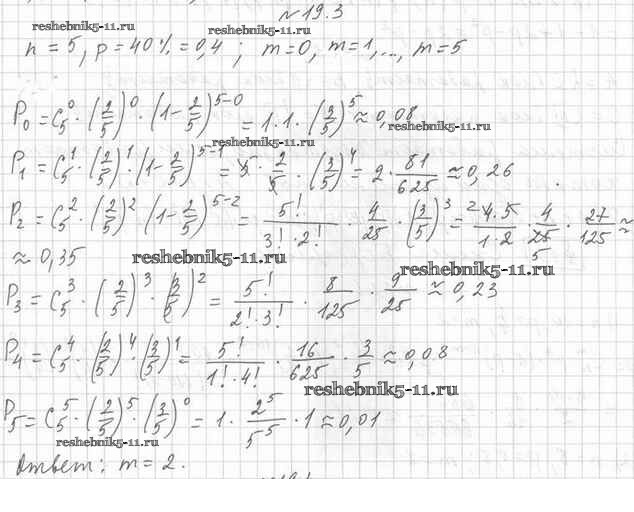 № 19.3
reshebnik5-11.ru reshebnik5-11.ru
n = 5, p = 40% = 0,4; m=0, m=1,..., m=5
P₀ = C₅⁰ · (2/5)⁰ · (1-2/5)⁵⁻⁰ = 1·1·(3/5)⁵ ≈ 0,08
reshebnik5-11.ru
reshebnik5-11.ru
P₁ = C₅¹ · (2/5)¹ · (1-2/5)⁵⁻¹ = 5 · 2/5 · (3/5)⁴ = 2 · 81/625 ≈ 0,26
P₂ = C₅² · (2/5)² (1-2/5)⁵⁻² = 5!/(3!·2!) · 4/25 · (3/5)³ = (4·5)/(1·2) · 4/25 · 27/125 ≈
≈ 0,35
reshebnik5-11.ru reshebnik5-11.ru
P₃ = C₅³ · (2/5)³ · (3/5)² = 5!/(2!·3!) · 8/125 · 9/25 ≈ 0,23
P₄ = C₅⁴ · (2/5)⁴ · (3/5)¹ = 5!/(1!·4!) · 16/625 · 3/5 ≈ 0,08
reshebnik5-11.ru
P₅ = C₅⁵ · (2/5)⁵ · (3/5)⁰ = 1 · 2⁵/5⁵ · 1 ≈ 0,01
reshebnik5-11.ru
Ответ: m = 2.